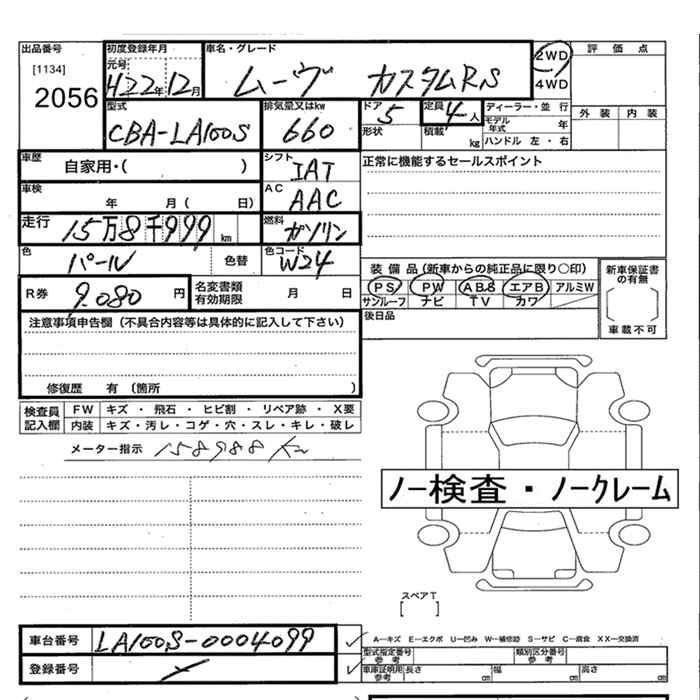 出品番号
[1134]
2056
初度登録年月
元号
H22年12月
車名・グレード
ムーヴ カスタムRS
2WD
4WD
評価点
外装 内装
型式
CBA-LA100S
排気量又はkw
660
ドア
5
形状
定員
4人
積載
kg
ディーラー・並 行
モデル年式 年
ハンドル 左・右
車歴
自家用・( )
シフト
IAT
正常に機能するセールスポイント
車検
年 月( 日)
AC
AAC
走行
15万8千999km
燃料
ガソリン
色
パール
色替
色コード
W24
R券
9.080円
名変書類
有効期限
月 日
装備品(新車からの純正品に限り○印)
PS PW ABS エアB アルミW
サンルーフ ナビ TV カワ
新車保証書
の有無
車載不可
後日品
注意事項申告欄(不具合内容等は具体的に記入して下さい)
修復歴 有(箇所 )
検査員
記入欄
FW キズ・飛石・ヒビ割・リペア跡・X要
内装 キズ・汚レ・コゲ・穴・スレ・キレ・破レ
メーター指示 158988km
ノー検査・ノークレーム
スペアT
[ ]
車台番号
LA100S-0004099
登録番号
A―キズ E―エクボ U―凹み W―補修跡 S―サビ C―腐食 XX―交換済
型式指定番号
参考
類別区分番号
参考
車庫証明用
参考
長さ cm 幅 cm 高さ cm